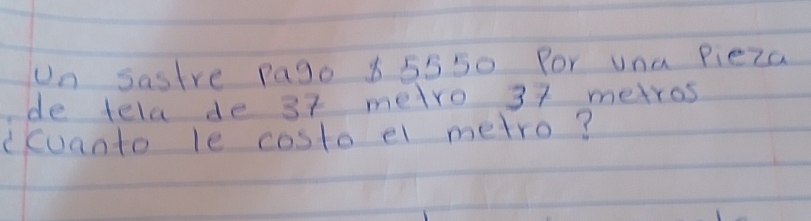 Un sastre pago $ 5550 Por una Pieza
de tela de 37 metro 37 metros
¿Cuanto le costo el metro?